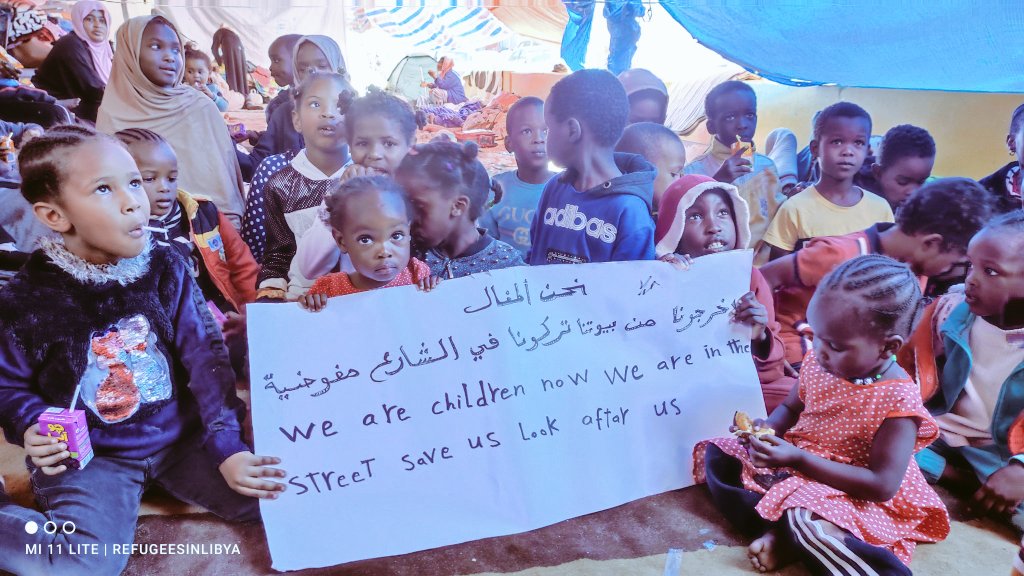 نحن ألمنال
خرجونا من بيوتنا تركونا في الشارع مفوضية
we are children now we are in the
street save us look after us
adibas
MI 11 LITE | REFUGEESINLIBYA